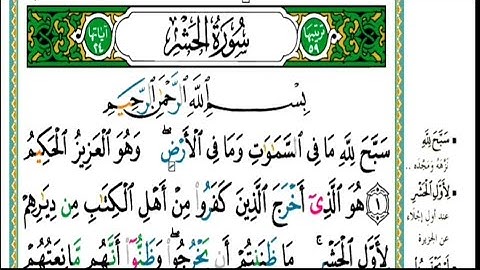 ترتيبها ٥٩
سُورَةُ الحَشْرِ
آياتها ٢٤
بِسْمِ اللَّهِ الرَّحْمَٰنِ الرَّحِيمِ
سَبَّحَ لِلَّهِ مَا فِى السَّمَٰوَٰتِ وَمَا فِى الْأَرْضِۖ وَهُوَ الْعَزِيزُ الْحَكِيمُ
١ هُوَ الَّذِىٓ أَخْرَجَ الَّذِينَ كَفَرُوا۟ مِنْ أَهْلِ الْكِتَٰبِ مِن دِيَٰرِهِمْ
لِأَوَّلِ الْحَشْرِۚ مَا ظَنَنتُمْ أَن يَخْرُجُوا۟ۖ وَظَنُّوٓا۟ أَنَّهُم مَّانِعَتُهُمْ
سَبَّحَ لِلَّهِ
نَزَّهَهُ وَمَجَّدَه ..
لِأَوَّلِ الْحَشْرِ
عند أول إجلاء
عن الجزيرة